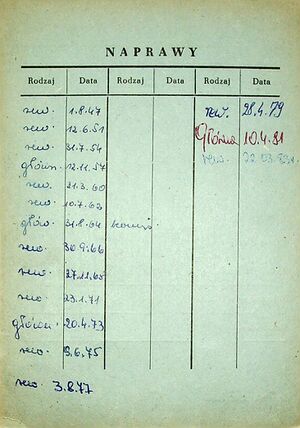 NAPRAWY
Rodzaj Data Rodzaj Data Rodzaj Data
rew. 1.8.47
rew. 12.6.51
rew. 31.7.54
główn. 12.11.57
rew. 21.3.60
rew. 10.7.62
głów. 31.8.64
rew. 30.9.66
rew. 27.11.68
rew. 23.1.71
główn. 20.4.73
rew. 9.6.75
rew. 3.8.77
rew. 28.4.79
Główna 10.4.81
rew. 22.03.83r.